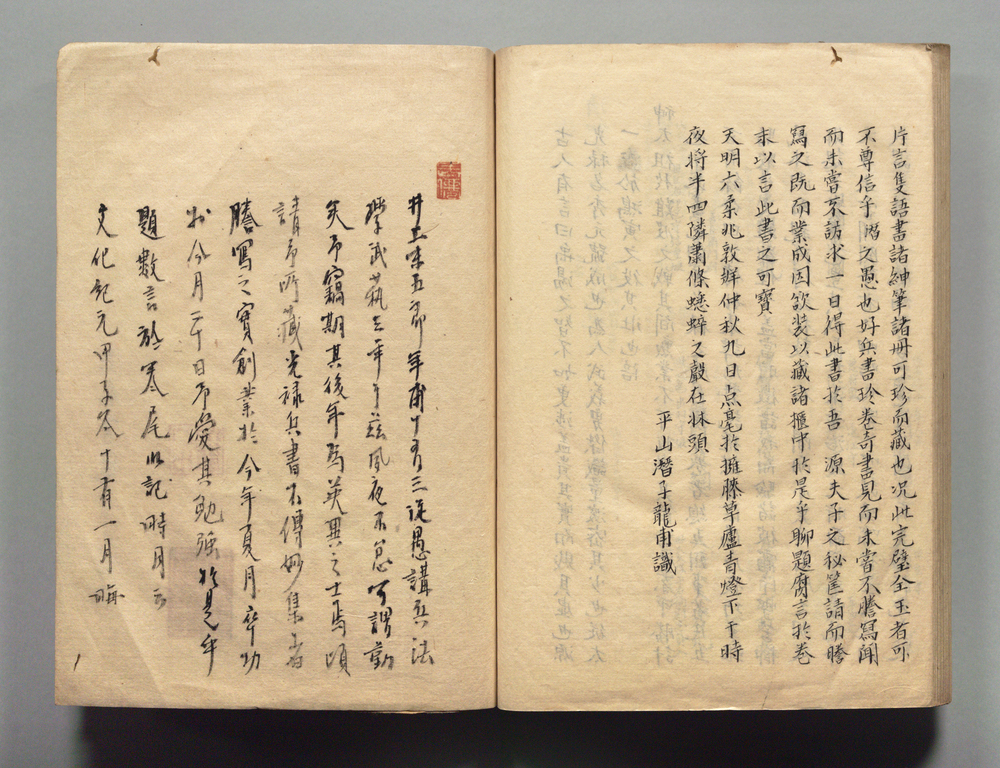 片言隻語書諸紳筆諸冊可珍而藏也况此完璧全玉者可
不尊信乎潛之愚也好兵書珍卷奇書見而未嘗不謄寫聞
而未嘗不訪求一日得此書於吾源夫子之秘篋請而謄
寫之既而業成因欲装以藏諸櫃中於是乎聊題腐言於卷
末以言此書之可寶
天明六柔兆敦牂仲秋九日点毫於擁膝草廬青燈下于時
夜将半四隣蕭條蟋蟀之聲在牀頭
平山潛子龍甫識
井上味五郎年甫十有三従愚講兵法
學武藝三年于茲夙夜不怠可謂勤
矣予竊期其後年為英異之士焉頃
請予所藏光禄兵書不傳妙集者
謄寫之實創業於今年夏月卒功
於今月二十日予愛其勉強於是乎
題數言於巻尾以記時月云
文化紀元甲子冬十有一月晦